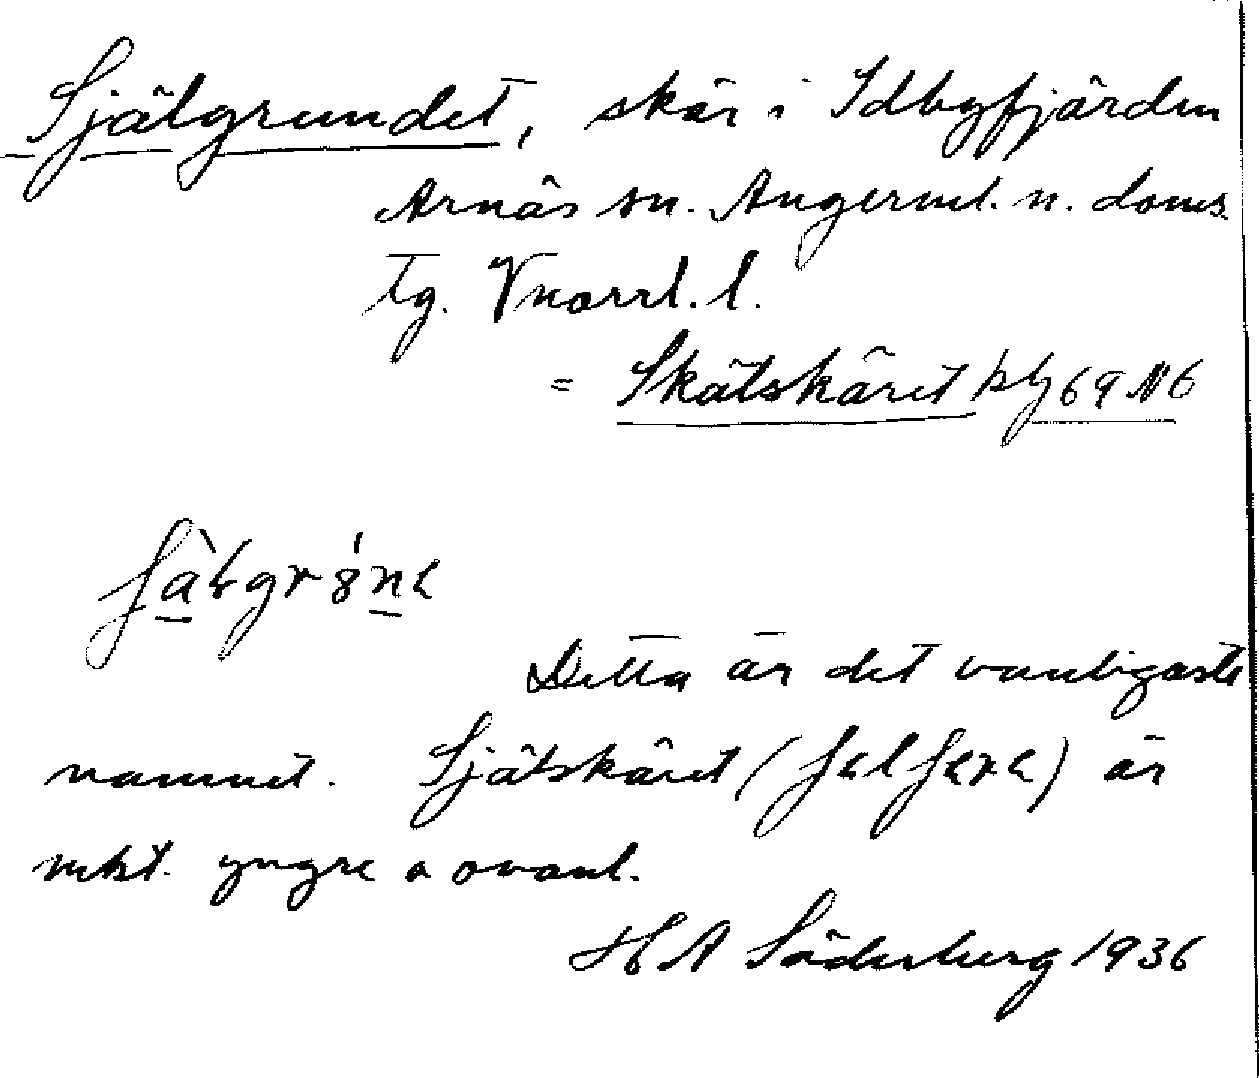 Själgrundet, skär i Idbyfjärden
Arnäs sn. Ångerml. n. doms.
tg. Vnorrl. l.
= Skätskäret kbl 69 N 6
Detta är det vanligaste
namnet. Själskäret ( ) är
yngre o ovanl.
H A Söderberg 1936